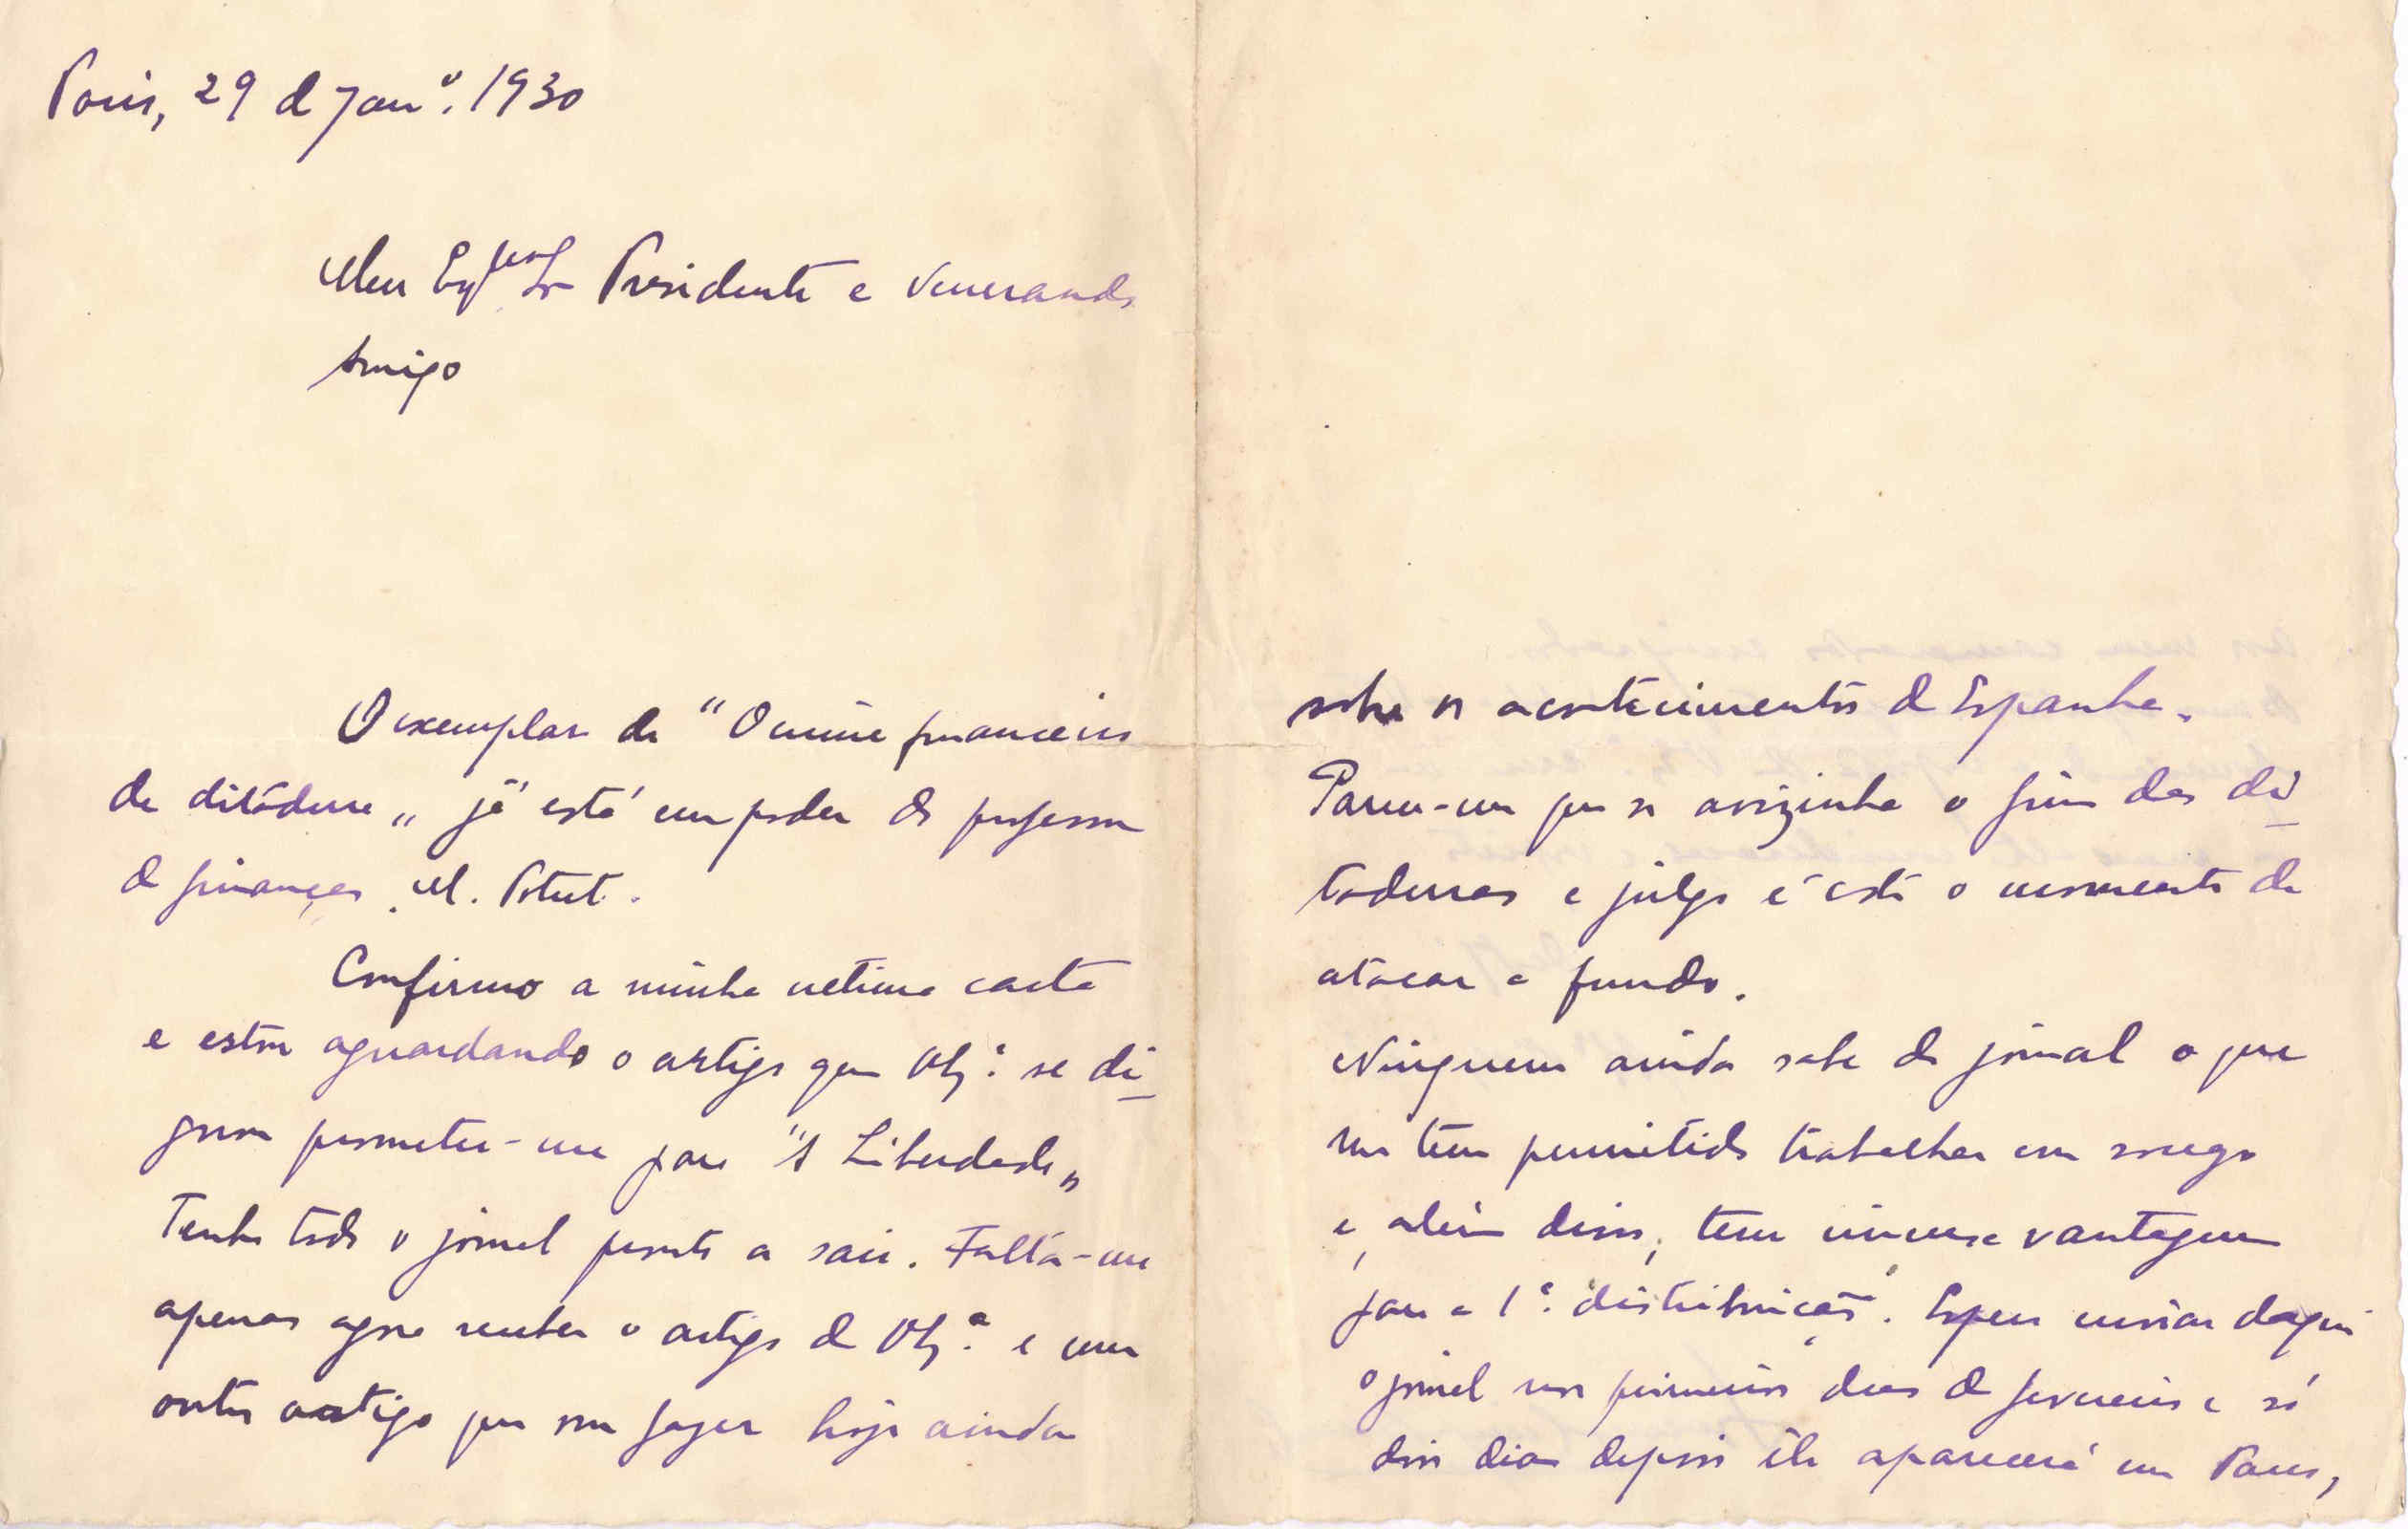 Paris, 29 de Janº. 1930
Meu Exmo Sr Presidente e Venerando
Amigo
O exemplar da "O crime financeiro
da ditadura„ já está em poder do professor
de finanças M. Potut.
Confirmo a minha ultima carta
e estou aguardando o artigo que V. Exª. se di-
gnou prometer-me para "A Liberdade„
Tenho todo o jornal pronto a sair. Falta-me
apenas agora receber o artigo de V. Exª. e um
outro artigo que vou fazer hoje ainda
sobre os acontecimentos de Espanha.
Parece-me que se avizinha o fim das di-
taduras e julgo é este o momento de
atacar a fundo.
Ninguem ainda sabe do jornal o que
me tem permitido trabalhar em socego
e, alem disso, tem imensa vantagem
para a 1ª. distribuição. Espero enviar daqui
o jornal nos primeiros dias de fevereiro e só
dois dias depois êle aparecerá em Paris,